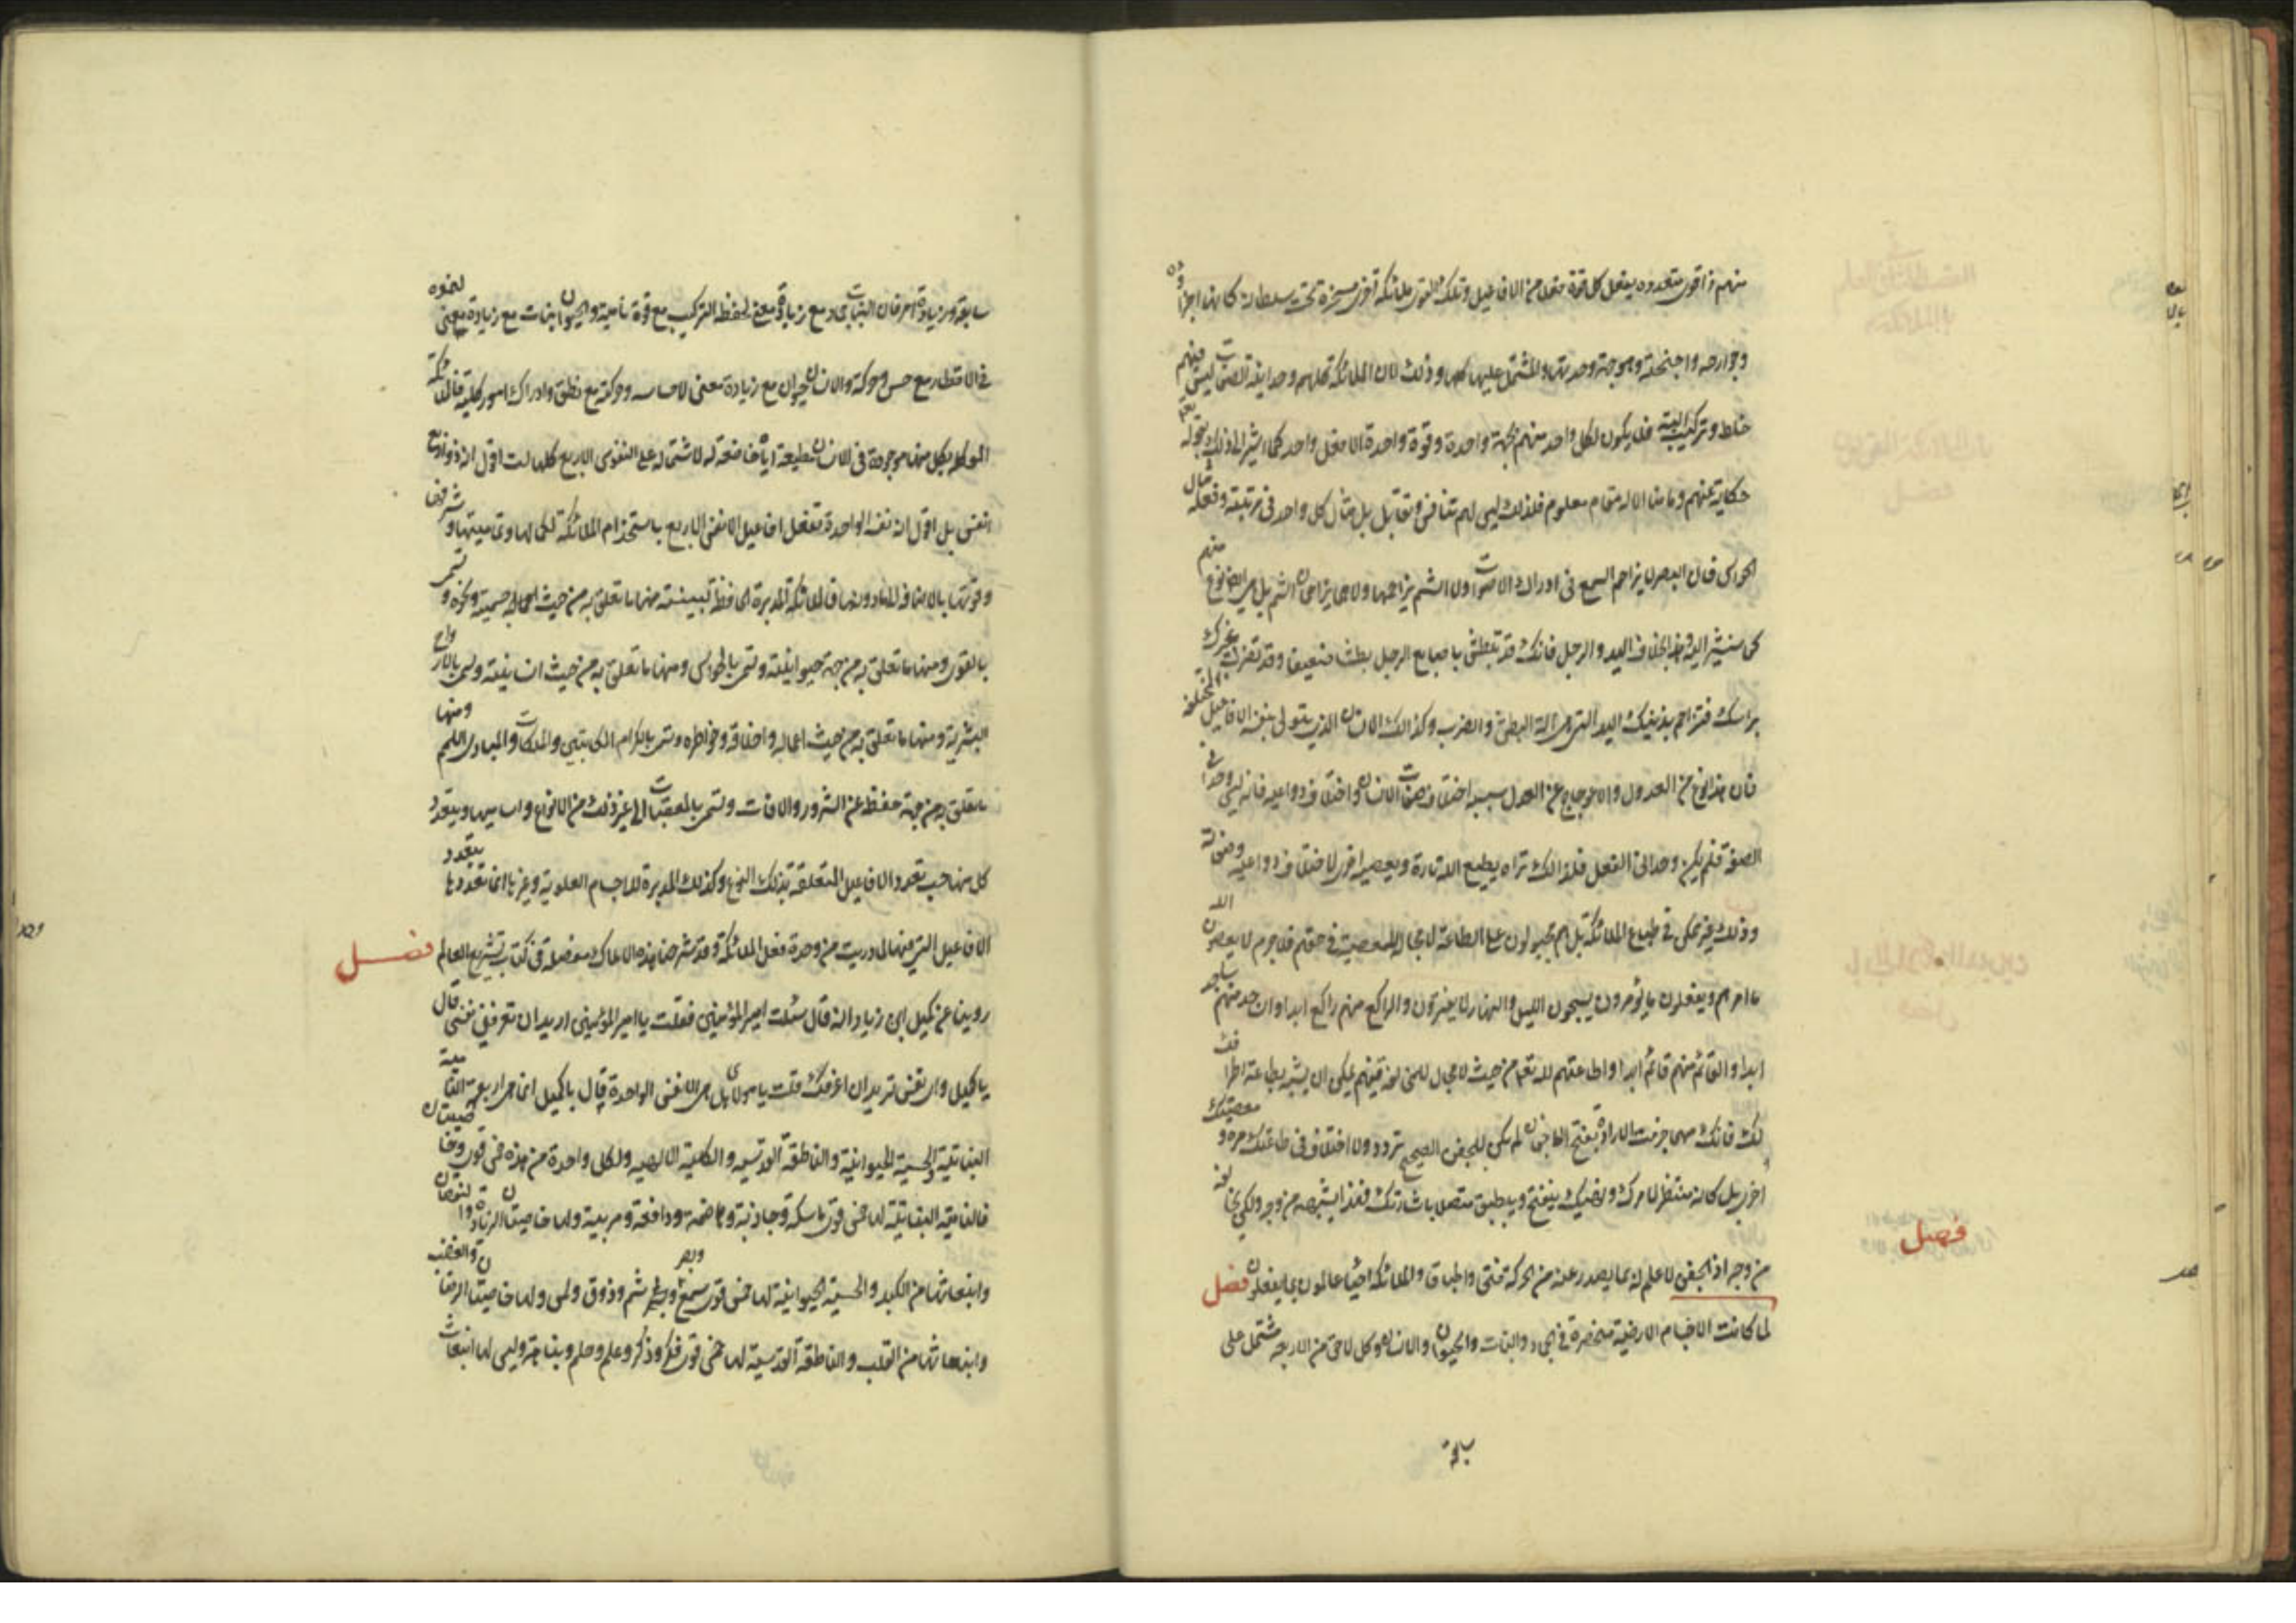 منهم ذا قوى متعدده يفعل كل قوة فعلا من الافاعيل وتلك القوى ملائكه اخرى مسخرة تحت سلطانه كانها اجزاؤه
وجوارحه واجنحته وهو جهة وحدتها والمشتمل عليها كلها وذلك لان الملائكة كلهم وحدانية الصفات ليس فيهم
خلط وتركيب البتة فلا يكون لكل واحد منهم الا جهة واحدة وقوة واحدة الا فعل واحد كما اشير الى ذلك بقوله تعه
حكاية عنهم وما منا الا له مقام معلوم فلذلك ليس لهم تنافس وتقابل بل مثال كل واحد فى مرتبته وفعله مثال
الحواس فان البصر لا يزاحم السمع فى ادراك الاصوات ولا الشم يزاحمها ولا هما يزاحمان الشم بل
اليد والرجل فانك قد تبطش باصابع الرجل بطشا ضعيفا وقد تضرب غيرك
براسك فتزاحم بذينك اليد التى هى الة البطش والضرب وكذلك الانسان الذى يتولى بنفسه الافاعيل المختلفه
فان هذا نوع من العدول والاعوجاج عن العدل سببه اختلاف صفات الانسان واختلاف دواعيه فانه ليس وحدانى
الصفة فلم يكن وحدانى الفعل فلذلك تراه يطيع الله تارة ويعصيه اخرى لاختلاف دواعيه وصفاته
وذلك غير ممكن فى طباع الملائكة بل هم مجبولون على الطاعة لا مجال للمعصية فى حقهم فلا جرم لا يعصون الله
ما امرهم ويفعلون ما يؤمرون يسبحون الليل والنهار لا يفترون والراكع منهم راكع ابدا والساجد منهم ساجد
ابدا والقائم منهم قائم ابدا واطاعتهم لله تعه من حيث لا مجال للمخالفة فيهم يمكن ان يشبه بطاعة اطرافك
لك فانك مهما جزمت الارادة بفتح الاجفان لم يكن للجفن الصحيح تردد ولا اختلاف فى طاعتك مره ومعصيتك
اخرى بل كانه منتظر لامرك ونهيك ينفتح وينطبق متصلا باشارتك فهذا يشبهه من وجه ولكن يخالفه
من وجه اذ الجفن لا علم له بما يصدر عنه من الحركة فتحا واطباقا والملائكه احياء عالمون بما يفعلون فصل
لما كانت الاجسام الارضية منحصرة فى الجماد والنبات والحيوان والانسان وكل لاحق من الاربعه مشتمل على
فصل
سابقه
سابقه وزيادة امر فان النبات جماد مع زيادة معنى لحفظ التركيب مع قوة نامية والحيوان نبات مع زيادة معنى النمو
فى الاقطار مع حس وحركة والانسان حيوان مع زيادة معنى الاحساس وحركة مع نطق وادراك امور كلية فالملائكة
الموكله بكل منها موجودة فى الانسان مطيعة اياه خاضعة له لاشتماله على النفوس الاربع كلها لست اقول انه ذو اربع
انفس بل اقول ان نفسه الواحدة تفعل افاعيل الانفس الاربع باستخدام الملائكة لكمالها وتماميتها وشرفها
وقوتها بالاضافه الى ما دونها فالملائكة المدبرة الحافظة لبنيته منها ما تعلق به من حيث الجماديه جسمية ونحوه وتسمى
بالقوى ومنها ما تعلق به من جهة حيوانيته وتسمى بالحواس ومنها ما تعلق به من حيث انسانيته وتسمى بالارواح
البشرية ومنها ما تعلق به من حيث اعماله واخلاقه وخواطره وتسمى بالكرام الكاتبين والملكات والمبادى اللهم ومنها
ما تعلق به من جهة حفظه عن الشرور والافات وتسمى بالمعقبات الى غير ذلك من الانواع واساميها ويتعدد
كل منها حسب تعدد الافاعيل المتعلقة بذلك النوع وكذلك المدبرة للاجسام العلوية وغيرها انما تعددها بتعدد
الافاعيل التى منها لما دريت من وحدة فعل الملائكة وقد شرحنا هذه الاملاك مفصلة فى كتاب تشريح العالم فصل
روينا عن كميل ابن زياد انه قال سئلت امير المؤمنين فقلت يا امير المؤمنين اريد ان تعرفنى نفسى قال
يا كميل واى نفس تريد ان اعرفك قلت يا مولاى هل هى الا نفس الواحدة قال يا كميل انما هى اربعة النامية
النباتية والحسية الحيوانية والناطقة القدسيه والكلية الالهيه ولكل واحدة من هذه خمس قوى وخاصيتان
فالنامية النباتية لها خمس قوى ماسكة وجاذبة وهاضمة ودافعة ومربية ولها خاصيتان الزيادة والنقصان
وانبعاثها من الكبد والحسية الحيوانية لها خمس قوى سمع وبصر وشم وذوق ولمس ولها خاصيتان الرضا والغضب
وانبعاثها من القلب والناطقة القدسية لها خمس قوى فكر وذكر وعلم وحلم ونباهة وليس لها انبعاث